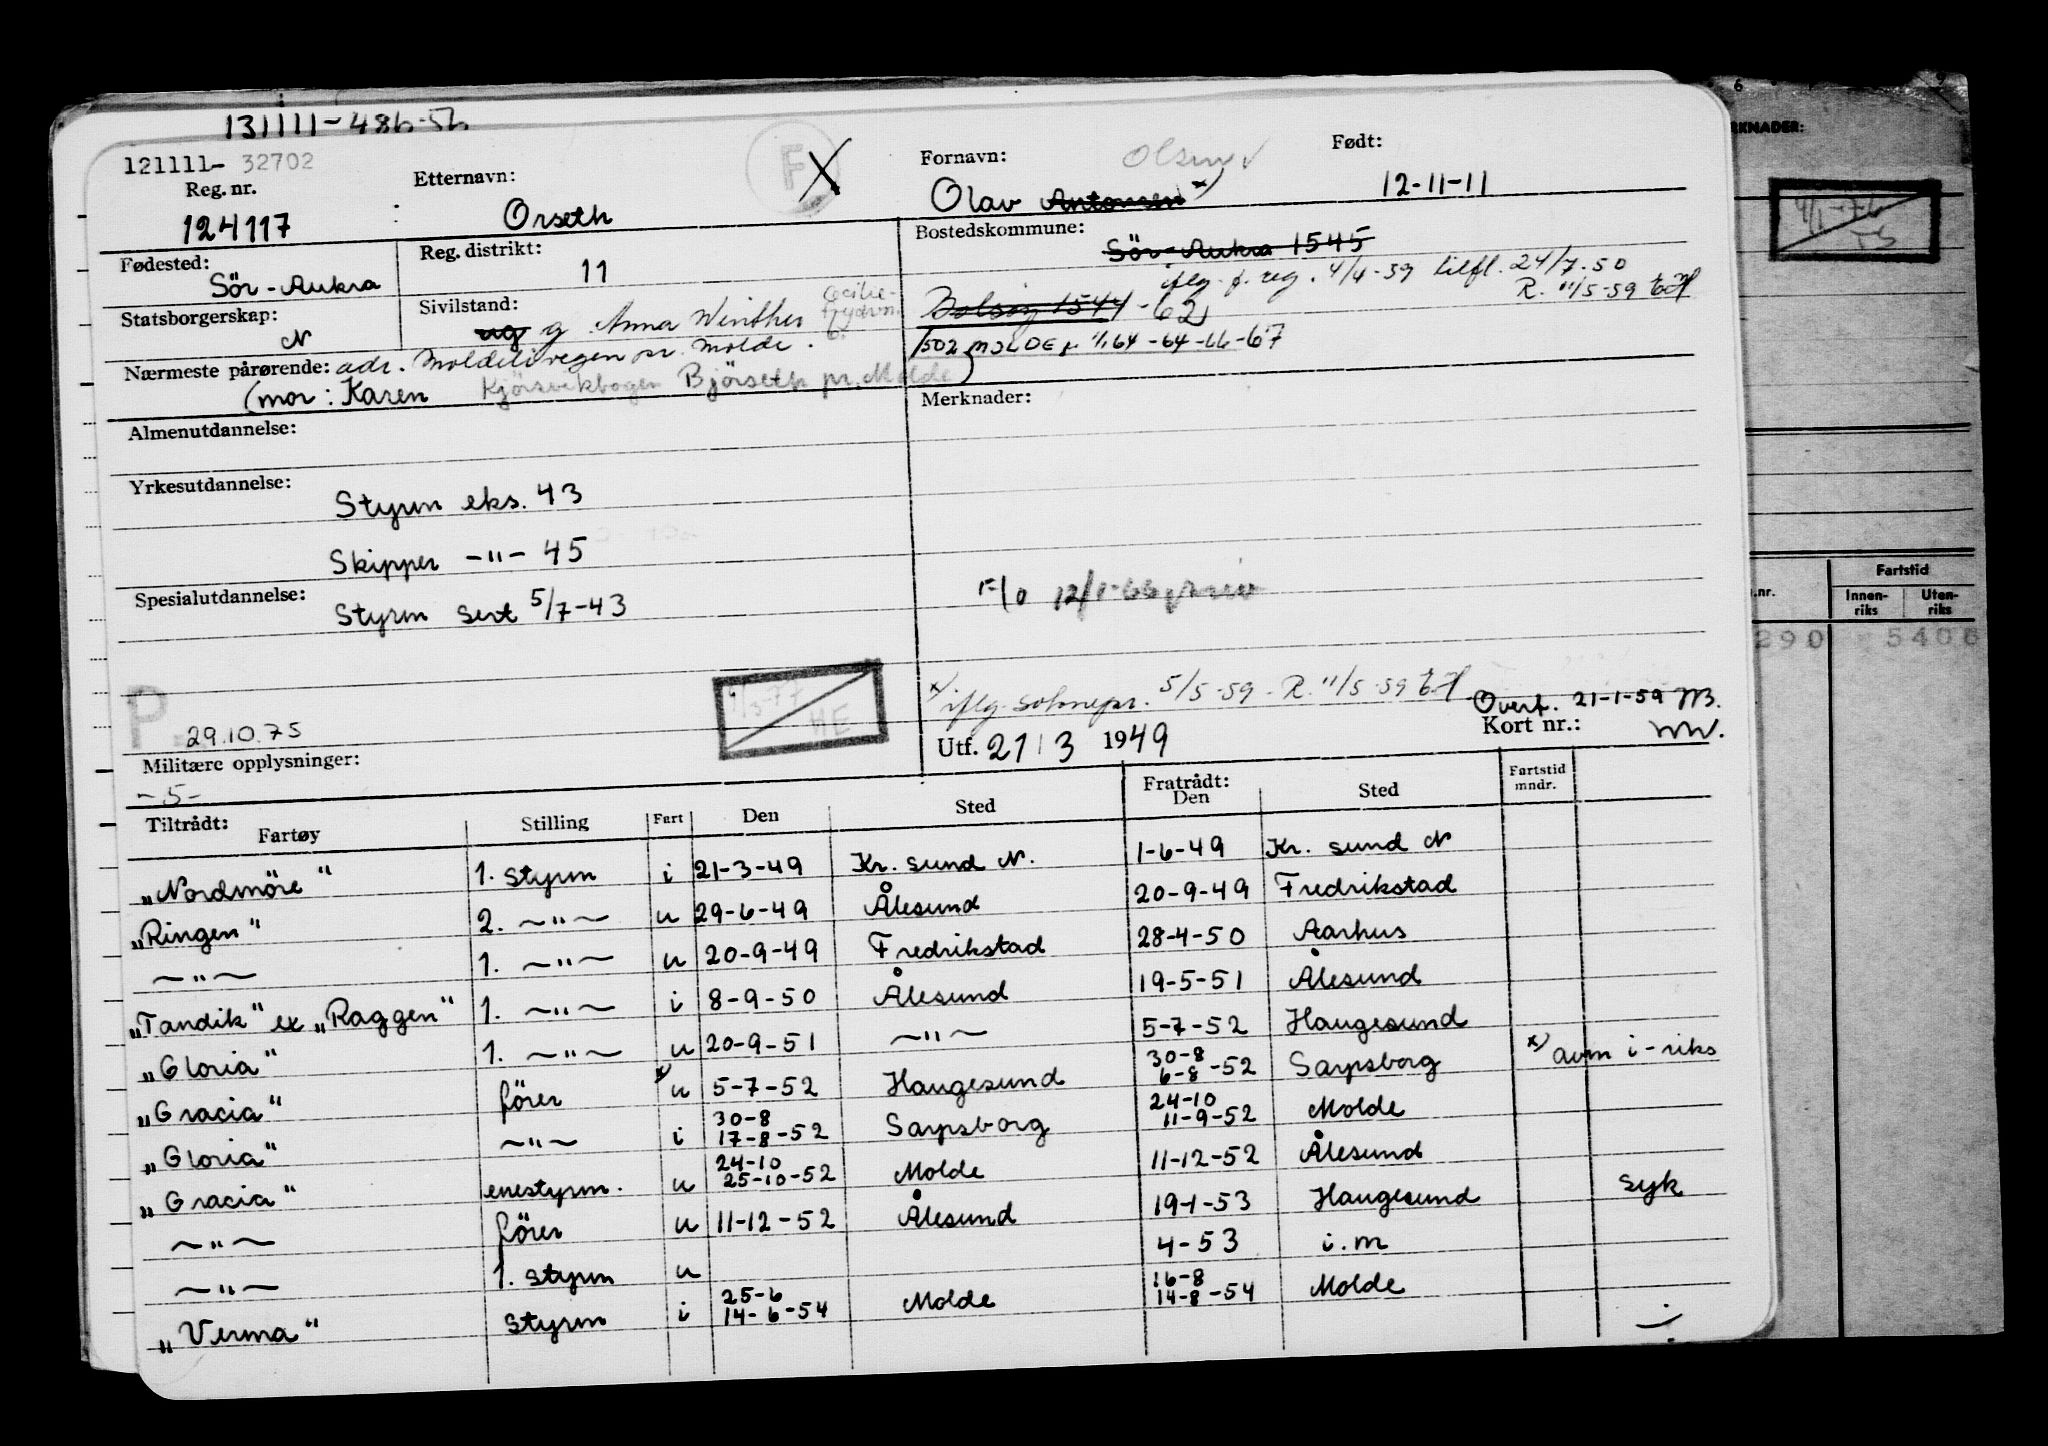 131111-486-56
121111- 32702
Reg. nr.
124117
Etternavn:
Orseth
F X
Fornavn:
Olsen
Olav Antonsen x)
Født:
12-11-11
Fødested:
Sör-Aukra
Reg. distrikt:
11
Bostedskommune:
Sör-Aukra 1545
iflg. f. reg. 4/4-59 tilfl. 24/7-50
R. 11/5-59
Bolsøy 1544 -62
1502 MOLDE 1/1 64-64-66-67
Statsborgerskap:
N
Sivilstand:
ug g. Anna Winther
Nærmeste pårørende: adr. Moldelivegen pr. Molde.
(mor: Karen Kjörsvikbogen Björseth pr. Molde)
Merknader:
Almenutdannelse:
Yrkesutdannelse:
Styrm eks. 43
Skipper -"- 45
Spesialutdannelse:
Styrm sert 5/7-43
F/o 12/1-66
P
29.10.75
HE
x) iflg. 5/5-59 - R. 11/5-59
Overf. 21-1-59
Utf. 21/3 1949
Kort nr.:
Militære opplysninger:
-5-
Tiltrådt:
Fartøy Stilling Fart Den Sted Fratrådt: Den Sted Fartstid mndr.
"Nordmöre" 1. styrm i 21-3-49 Kr. sund N. 1-6-49 Kr. sund N
"Ringen" 2. -"- u 29-6-49 Ålesund 20-9-49 Fredrikstad
-"- 1. -"- u 20-9-49 Fredrikstad 28-4-50 Aarhus
"Tandik" ex "Raggen" 1. -"- i 8-9-50 Ålesund 19-5-51 Ålesund
"Gloria" 1. -"- u 20-9-51 -"- 5-7-52 Haugesund
"Gracia" förer x) u 5-7-52 Haugesund 30-8 6-8-52 Sarpsborg x) avm i-riks
"Gloria" -"- i 30-8 17-8-52 Sarpsborg 24-10 11-9-52 Molde
"Gracia" enestyrm. u 24-10 25-10-52 Molde 11-12-52 Ålesund
-"- förer u 11-12-52 Ålesund 19-1-53 Haugesund syk
-"- 1. styrm u 4-53 i.m
"Verma" styrm i 25-6 14-6-54 Molde 16-8 14-8-54 Molde
RKNADER:
Fartstid
.nr. Innen-riks Uten-riks
290 5406